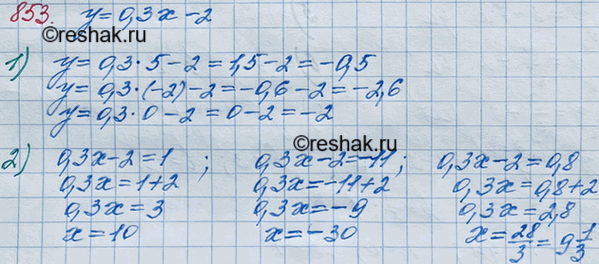 853. y=0,3x-2
©reshak.ru
1) y=0,3·5-2=1,5-2=-0,5
y=0,3·(-2)-2=-0,6-2=-2,6
y=0,3·0-2=0-2=-2
©reshak.ru
2) 0,3x-2=1 ; 0,3x-2=-11; 0,3x-2=0,8
0,3x=1+2 0,3x=-11+2 0,3x=0,8+2
0,3x=3 0,3x=-9 0,3x=2,8
x=10 x=-30 x=28/3=9 1/3